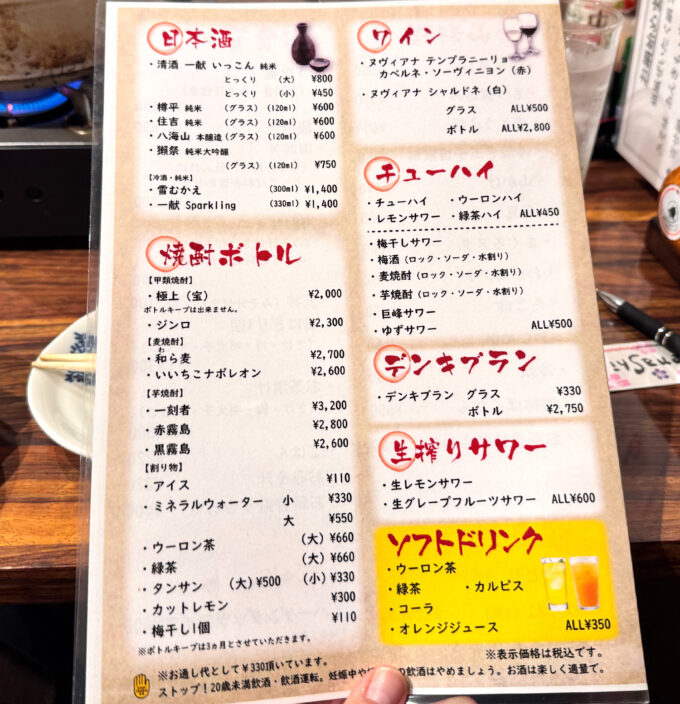 日本酒
・清酒 一献 いっこん 純米
とっくり (大) ¥800
とっくり (小) ¥450
・樽平 純米 (グラス) (120ml) ¥600
・住吉 純米 (グラス) (120ml) ¥600
・八海山 本醸造 (グラス) (120ml) ¥600
・獺祭 純米大吟醸
(グラス) (120ml) ¥750
【冷酒・純米】
・雪むかえ (300ml) ¥1,400
・一献 Sparkling (330ml) ¥1,400
焼酎ボトル
【甲類焼酎】
・極上(宝) ¥2,000
ボトルキープは出来ません。
・ジンロ ¥2,300
【麦焼酎】
わ
・和ら麦 ¥2,700
・いいちこナポレオン ¥2,600
【芋焼酎】
・一刻者 ¥3,200
・赤霧島 ¥2,800
・黒霧島 ¥2,600
【割り物】
・アイス ¥110
・ミネラルウォーター 小 ¥330
大 ¥550
・ウーロン茶 (大) ¥660
・緑茶 (大) ¥660
・タンサン (大) ¥500 (小) ¥330
・カットレモン ¥300
・梅干し1個 ¥110
※ボトルキープは3ヵ月とさせていただきます。
ワイン
・ヌヴィアナ テンプラニーリョ
カベルネ・ソーヴィニヨン(赤)
・ヌヴィアナ シャルドネ(白)
グラス ALL¥500
ボトル ALL¥2,800
チューハイ
・チューハイ ・ウーロンハイ
・レモンサワー ・緑茶ハイ ALL¥450
・梅干しサワー
・梅酒(ロック・ソーダ・水割り)
・麦焼酎(ロック・ソーダ・水割り)
・芋焼酎(ロック・ソーダ・水割り)
・巨峰サワー
・ゆずサワー ALL¥500
デンキブラン
・デンキブラン グラス ¥330
ボトル ¥2,750
生搾りサワー
・生レモンサワー
・生グレープフルーツサワー ALL¥600
ソフトドリンク
・ウーロン茶
・緑茶 ・カルピス
・コーラ
・オレンジジュース ALL¥350
※表示価格は税込です。
※お通し代として¥330頂いています。
ストップ!20歳未満飲酒・飲酒運転。妊娠中や の飲酒はやめましょう。お酒は楽しく適量で。